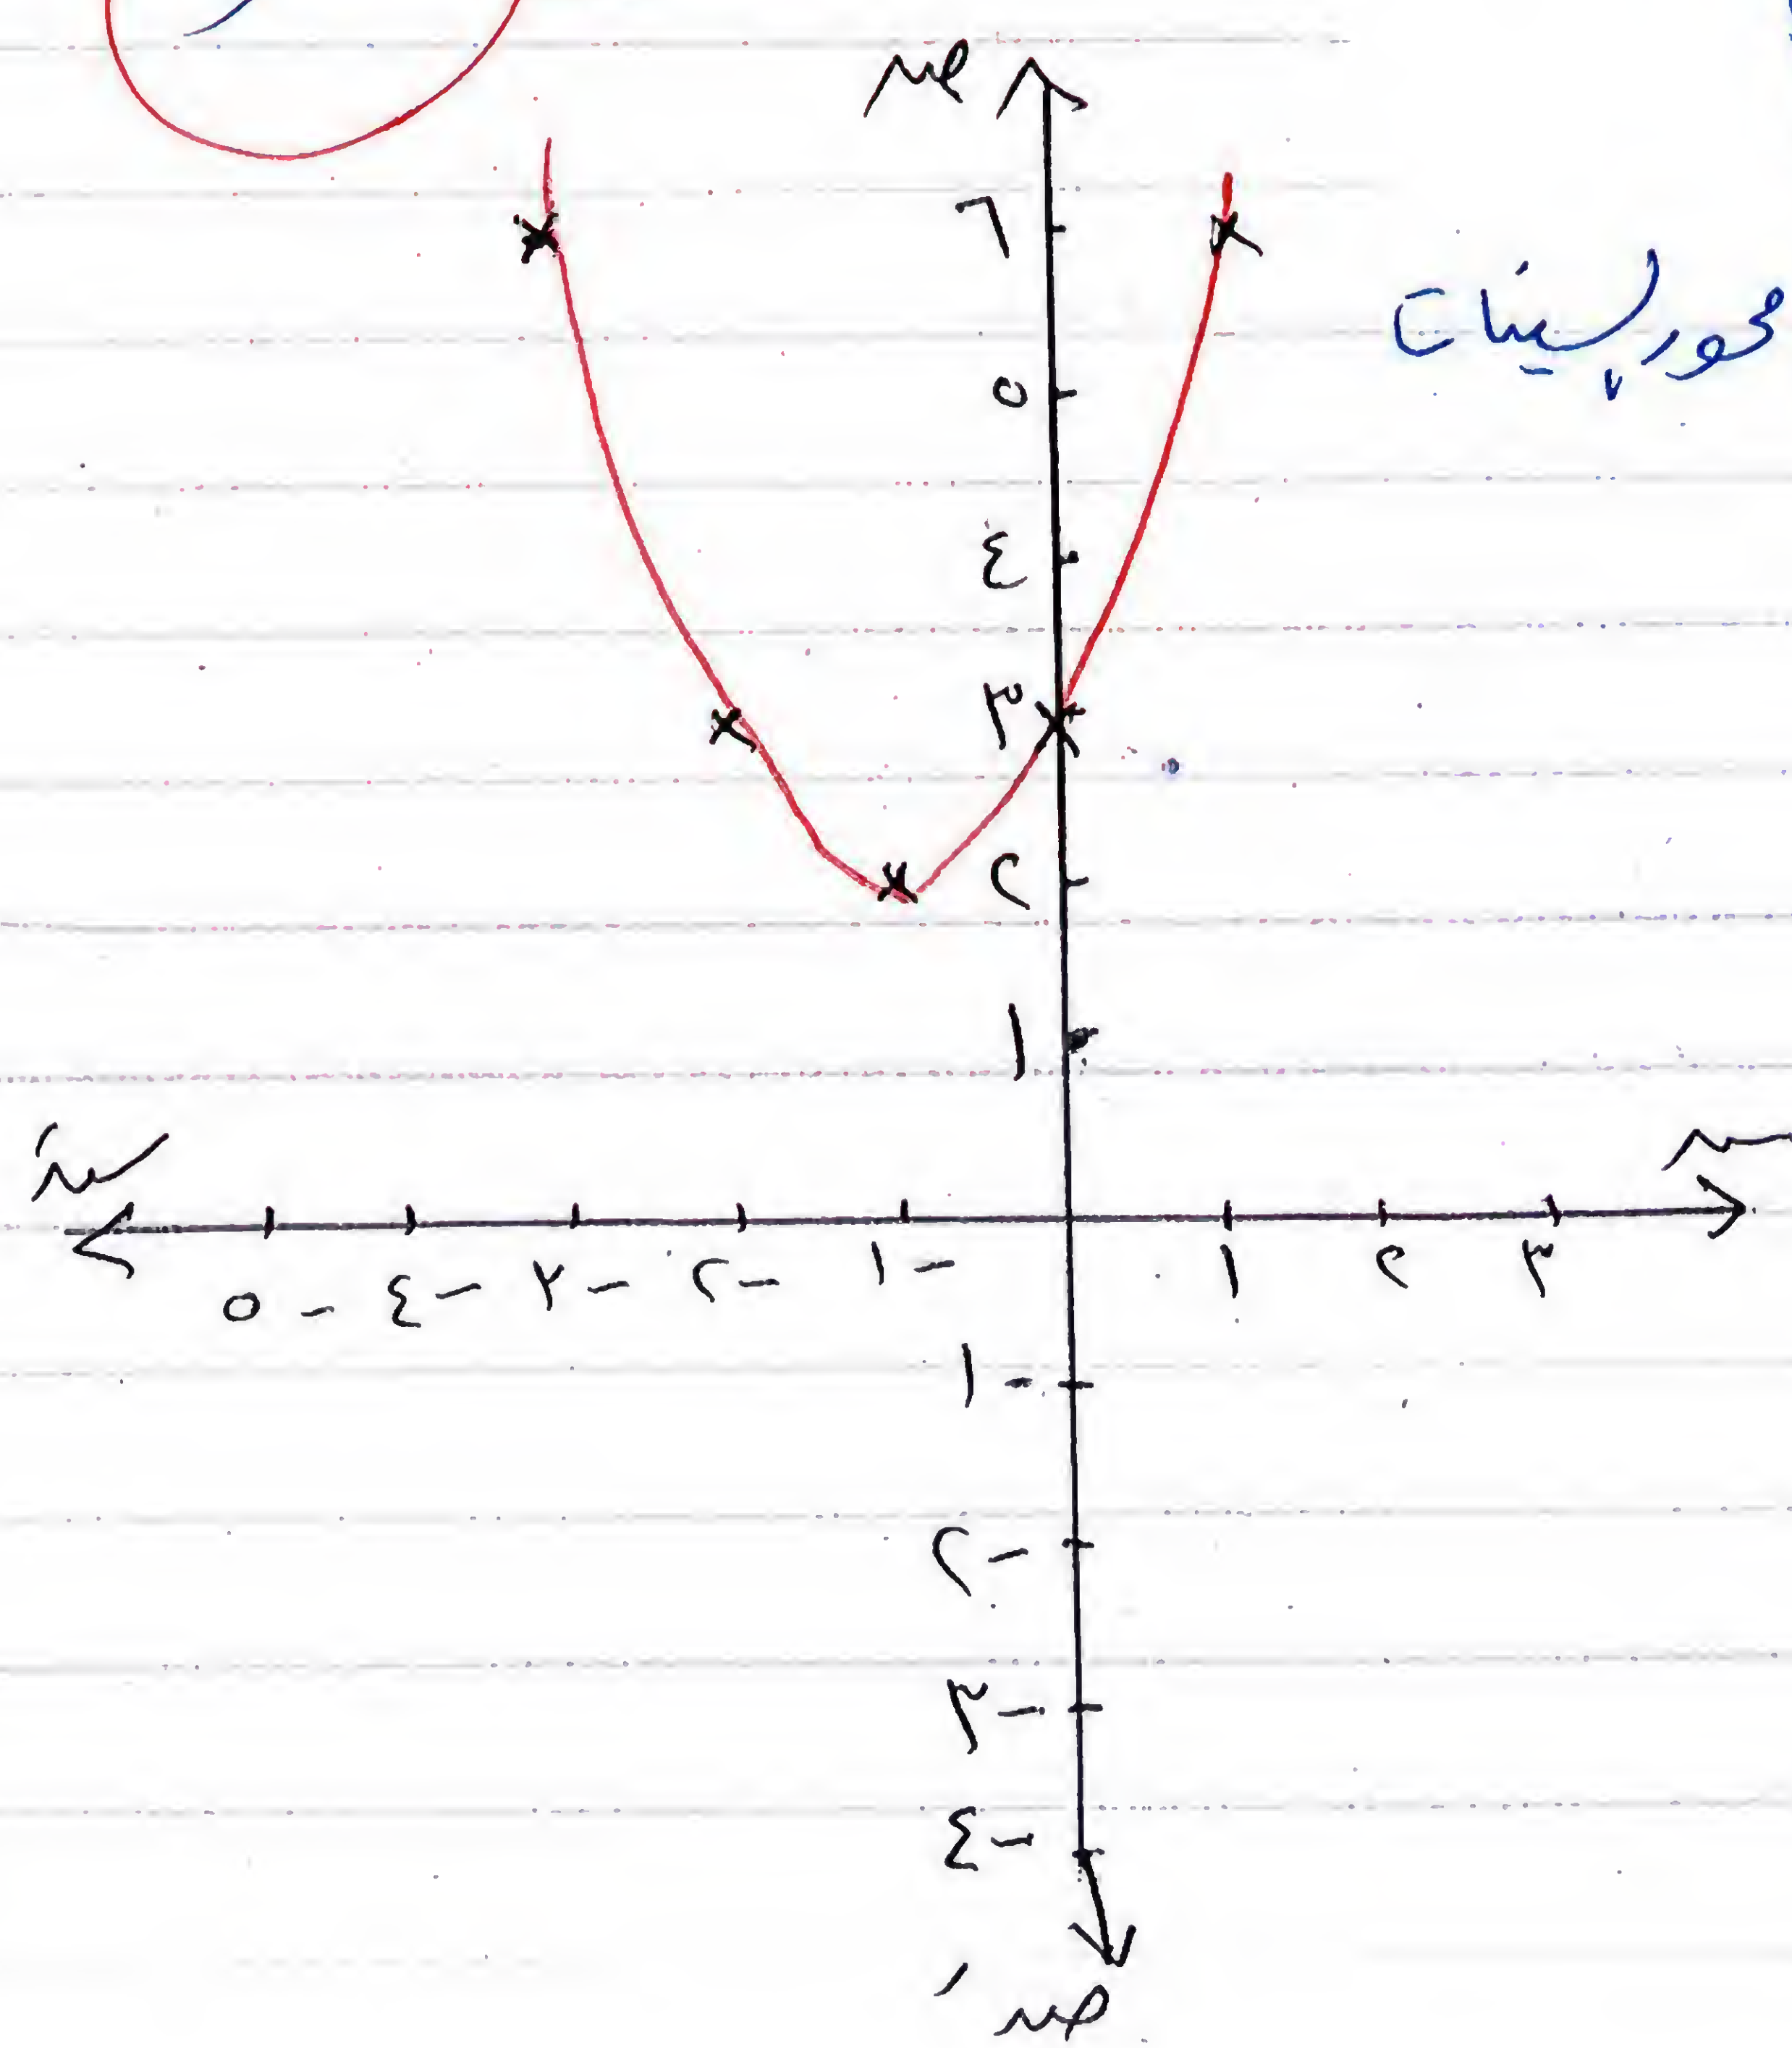 ص
٦
محور السينات
٥
٤
٣
٢
١
سَ س
-٥ -٤ -٣ -٢ -١ ١ ٢ ٣
-١
-٢
-٣
-٤
صَ